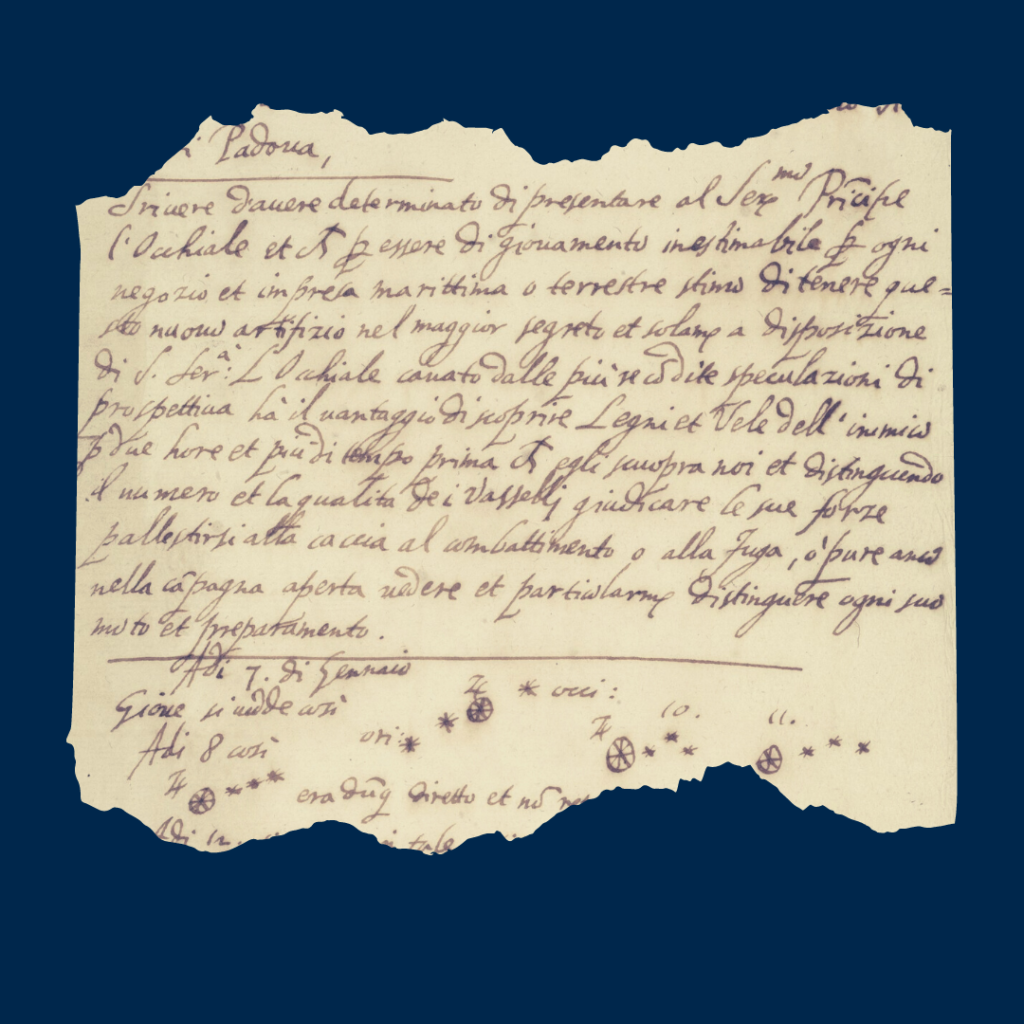 Padoua,
Scriuere d'auere determinato di presentare al Sermo Prīcipe
l'Occhiale et ch p essere di giouamento inestimabile p ogni
negozio et impresa marittima o terrestre stimo di tenere que=
sto nuouo artifizio nel maggior segreto et solamṫe a disposizione
di S. Ser.a: L'Occhiale cauato dalle piu recōdite speculazioni di
prospettiua ha il uantaggio di scoprire Legni et Vele dell' inimico
p due hore et piu di tempo prima ch egli scuopra noi et distinguendo
il numero et la qualita de i Vasselli giudicare le sue forze
pallestirsi alla caccia al combattimento o alla fuga, o pure anco
nella cāpagna aperta uedere et particolarmṫe distinguere ogni suo
moto et preparamento.
Adi 7. di Gennaio
Gioue si uedde cosi
♃ * * occi:
ori: *
Adi 8 cosi
♃ 10. 11.
♃ * * * era dūq diretto et nō
Adi 12. tale